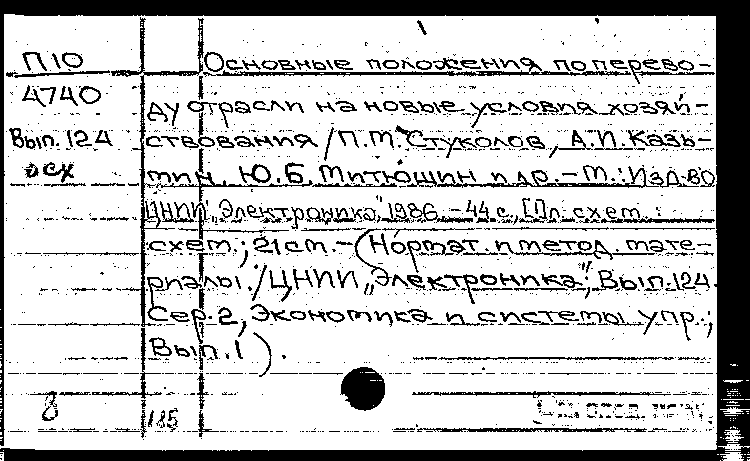 П10
4740
Вып. 124
осх
Основные положения по перево-
ду отрасли на новые условия хозяй-
ствования / П.М. Стуколов, А.И. Казь-
мин, Ю.Б. Митюшин и др. – М.: Изд-во
ЦНИИ „Электроника" 1986. – 44 с., [1] л. схем. :
схем.; 21 см. – (Нормат. и метод. мате-
риалы. / ЦНИИ „Электроника"; Вып. 124.
Сер. 2, Экономика и системы упр.;
Вып. 1).
8
185